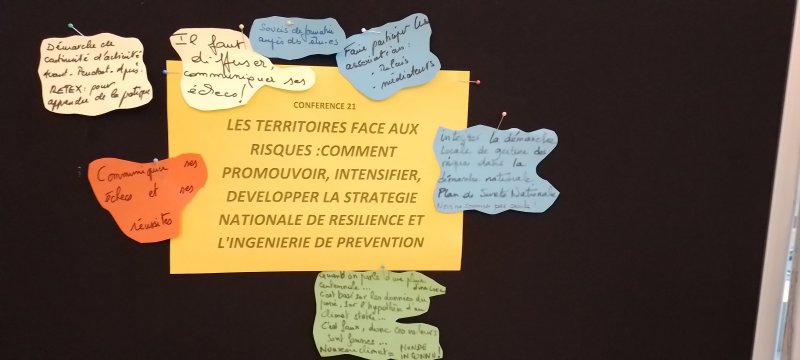 Démarche de
continuité d'activité
Avant. Pendant. Après.
RETEX : pour
apprendre de la pratique
Il faut
diffuser,
communiquer ses
échecs !
Soucis de formation
auprès des élu-es
Faire participer les
associations :
- Relais
- médiateurs
CONFERENCE 21
LES TERRITOIRES FACE AUX
RISQUES :COMMENT
PROMOUVOIR, INTENSIFIER,
DEVELOPPER LA STRATEGIE
NATIONALE DE RESILIENCE ET
L'INGENIERIE DE PREVENTION
Communiquer ses
échecs et ses
réussites
Intégrer la démarche
locale de gestion des
risques dans la
démarche nationale
Plan de Sureté Nationale
Nous ne sommes pas seuls !
Quand on parle d'une pluie
centennale ...
c'est basé sur les données du
passé, sur l'hypothèse d'un
climat stable...
C'est faux, donc ces valeurs
sont fausses...
Nouveau climat = MONDE
INCONNU !